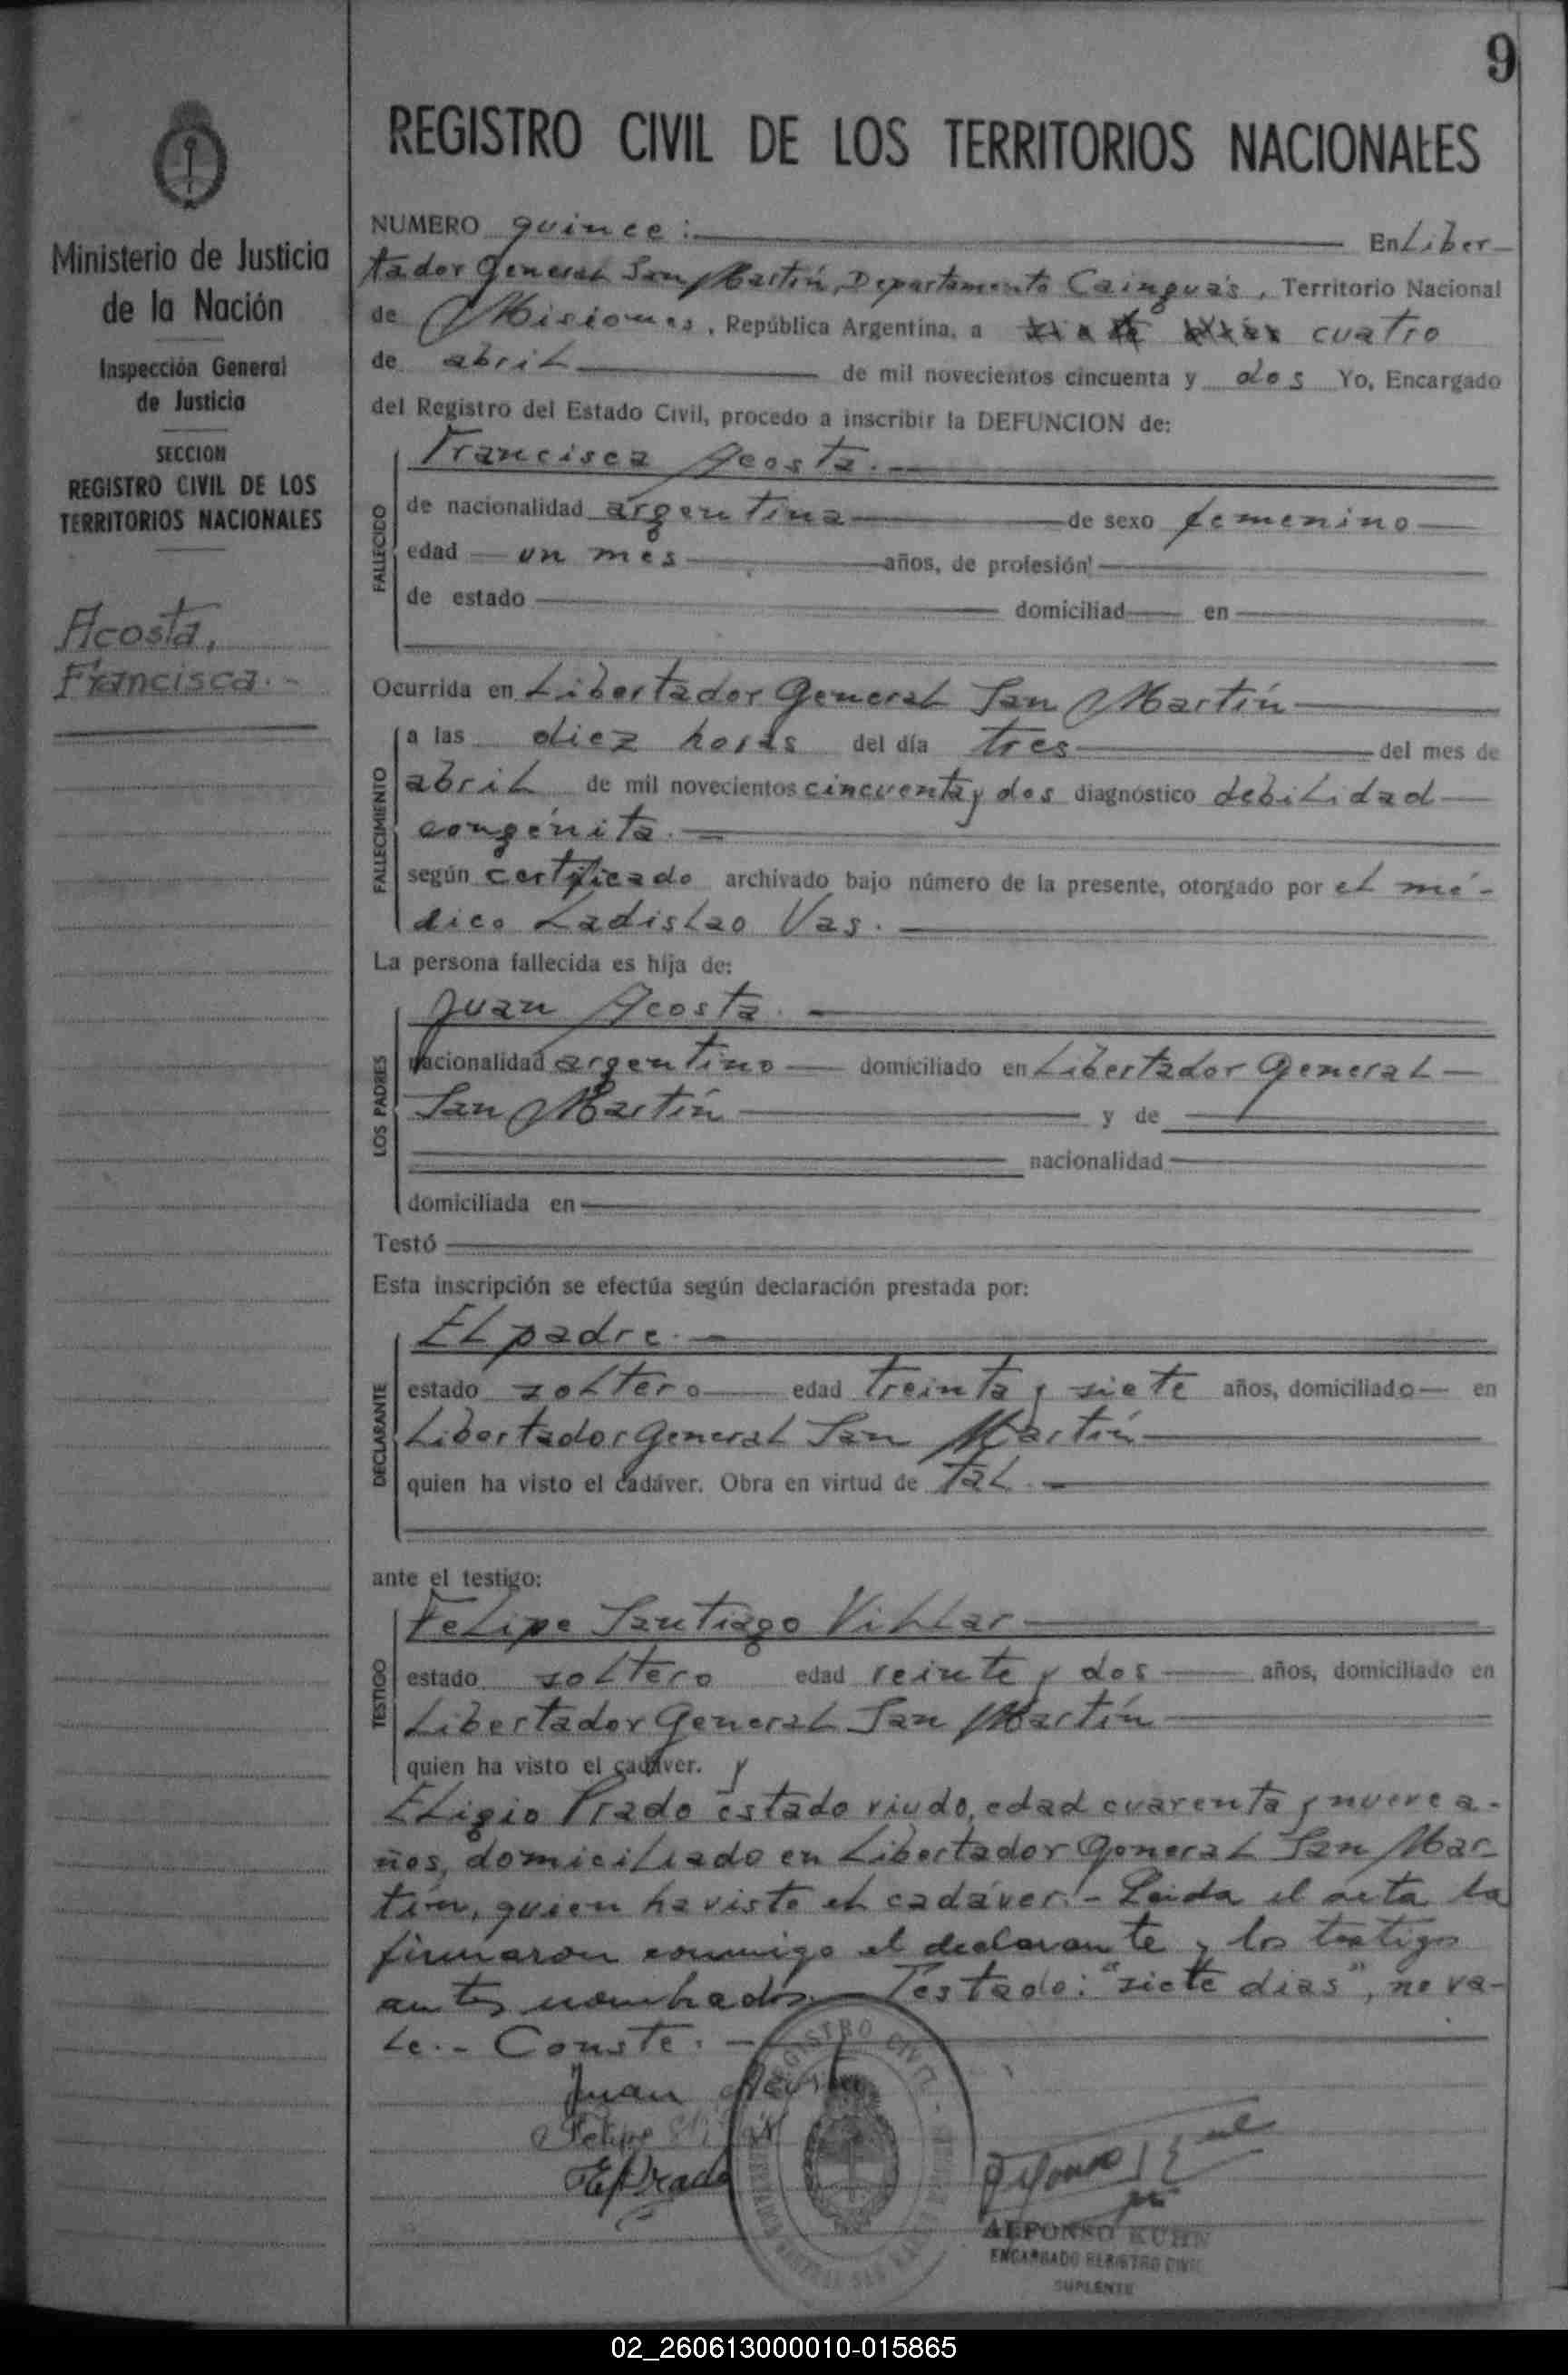 9
REGISTRO CIVIL DE LOS TERRITORIOS NACIONALES
Ministerio de Justicia
de la Nación
Inspección General
de Justicia
SECCION
REGISTRO CIVIL DE LOS
TERRITORIOS NACIONALES
Acosta,
Francisca.-
NUMERO quince: En Liber-
tador General San Martín, Departamento Cainguás, Territorio Nacional
de Misiones, República Argentina, a cuatro
de abril de mil novecientos cincuenta y dos Yo, Encargado
del Registro del Estado Civil, procedo a inscribir la DEFUNCION de:
FALLECIDO
Francisca Acosta.-
de nacionalidad argentina de sexo femenino
edad un mes años, de profesión
de estado domiciliad en
Ocurrida en Libertador General San Martín
FALLECIMIENTO
a las diez horas del día tres del mes de
abril de mil novecientos cincuenta y dos diagnóstico debilidad
congénita.-
según certificado archivado bajo número de la presente, otorgado por el mé-
dico Ladislao Vas.
La persona fallecida es hija de:
LOS PADRES
Juan Acosta.-
nacionalidad argentino domiciliado en Libertador General
San Martín y de
nacionalidad
domiciliada en
Testó
Esta inscripción se efectúa según declaración prestada por:
DECLARANTE
El padre.-
estado soltero edad treinta y siete años, domiciliado en
Libertador General San Martín
quien ha visto el cadáver. Obra en virtud de tal.-
ante el testigo:
TESTIGO
Felipe Santiago Villar
estado soltero edad veinte y dos años, domiciliado en
Libertador General San Martín
quien ha visto el cadáver. y
Eligio Prado estado viudo, edad cuarenta y nueve a-
ños, domiciliado en Libertador General San Mar-
tín, quien ha visto el cadáver.- Leida el acta la
firmaron conmigo el declarante y los testigos
antes nombrados.- Testado: "siete dias", no va-
le.- Conste.-
Juan Acosta
Felipe
E Prado
REGISTRO CIVIL
ALFONSO KUHN
ENCARGADO REGISTRO CIVIL
SUPLENTE
02_260613000010-015865